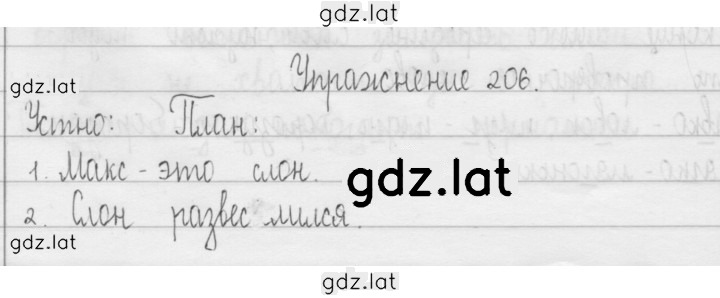 gdz.lat
Упражнение 206.
gdz.lat
Устно: План:
1. Макс - это слон.
gdz.lat
2. Слон развес лился.
gdz.lat
gdz.lat